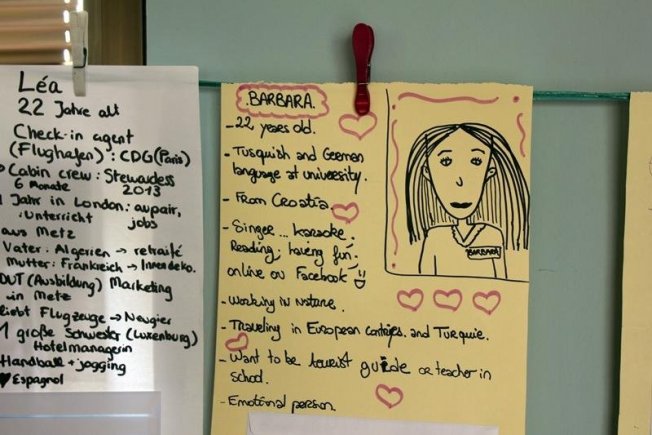 Léa
22 Jahre alt
Check-in agent
(Flughafen) : CDG (Paris)
Cabin crew : Stewardess
6 Monate 2013
1 Jahr in London : aupair,
Unterricht jobs
aus Metz
Vater : Algerien → retraité
Mutter : Frankreich → Innendeko.
DUT (Ausbildung) Marketing
in Metz
liebt Flugzeuge → Neugier
1 große Schwester (Luxenburg)
Hotelmanagerin
Handball + jogging
♥ Espagnol
BARBARA.
- 22 years old.
- Tusquish and German
language at university.
- From Croatia.
- Singer ... karaoke.
Reading, having fun.
online on Facebook
- Working in
- Traveling in European and Turquie.
- Want to be tourist guide or teacher in
school.
- Emotional person
BARBARA